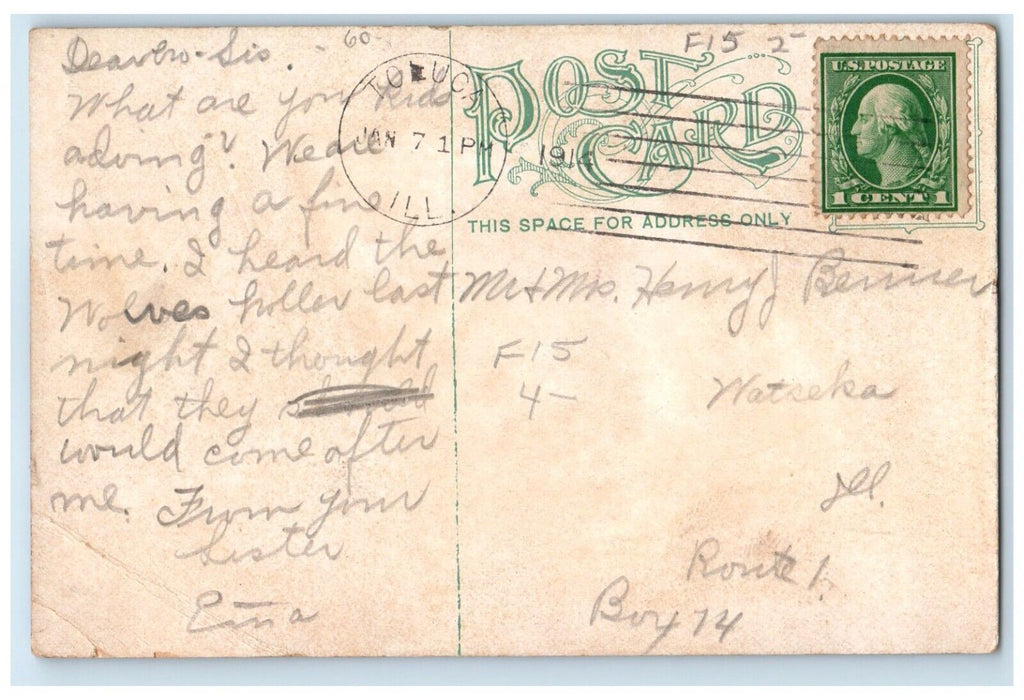 Dear bro & Sis.
What are you kids
adoing? We are
having a fine
time. I heard the
Wolves holler last
night I thought
that they
would come after
me. From your
Sister
60-
TOLUCA
JAN 7 1 PM
191
ILL.
F15 2-
POST CARD
THIS SPACE FOR ADDRESS ONLY
U.S. POSTAGE
1 CENT 1
Mr & Mrs. Henry J Benner
F15
4-
Watseka
Ill.
Route 1.
Box 74